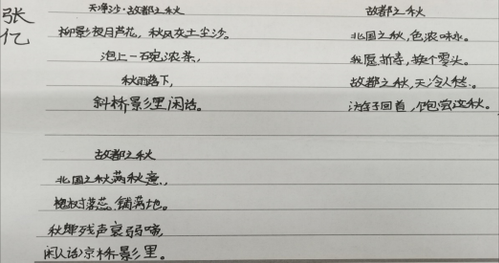 张亿
天净沙·故都之秋
柳影夜月芦花，秋风灰土尘沙。
泡上一碗浓茶，
秋雨落下，
斜桥影里闲话。
故都之秋
北国之秋，色浓味永。
我愿折寿，换个零头。
故都之秋，天冷人愁。
回首，饱尝这秋。
故都之秋
北国之秋满秋意，
槐树落蕊铺满地。
秋蝉残声衰弱嘶，
闲人话凉桥影里。